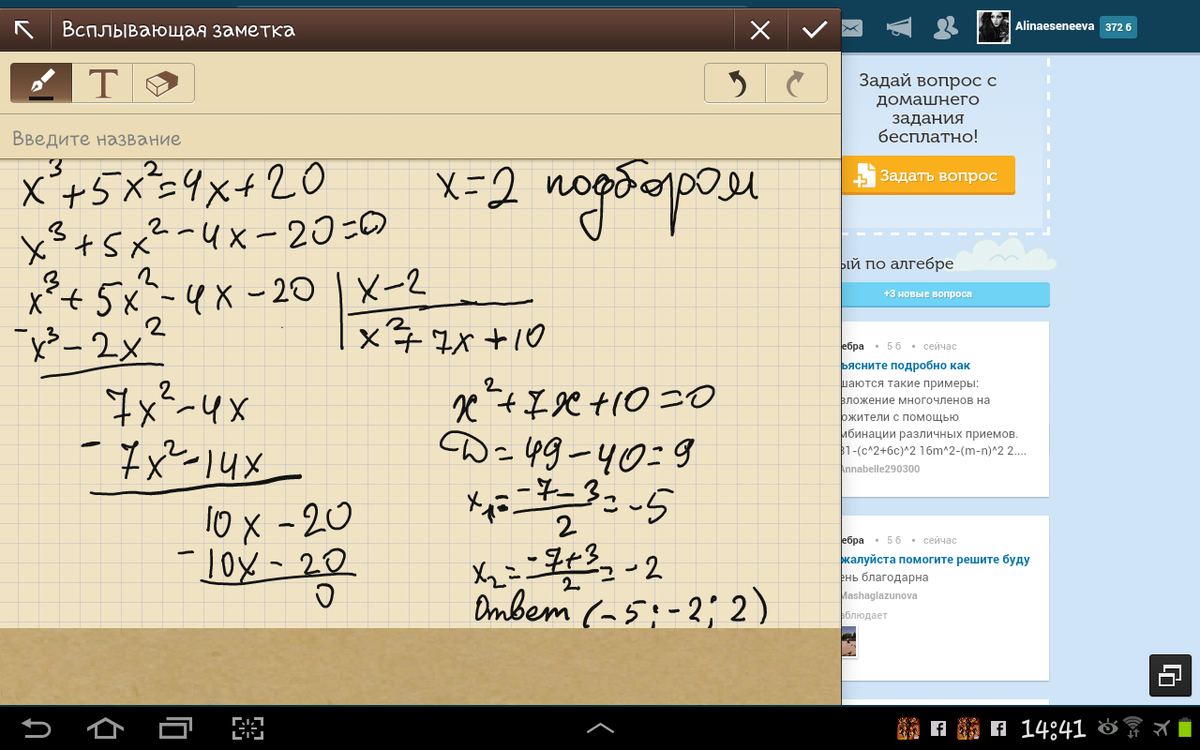 Всплывающая заметка
T
Введите название
x³+5x²=4x+20
x=2 подбором
x³+5x²-4x-20=0
x³+5x²-4x-20 | x-2
-x³-2x²
x²+7x+10
7x²-4x
-7x²-14x
10x-20
-10x-20
0
x²+7x+10=0
D=49-40=9
x₁=(-7-3)/2=-5
x₂=(-7+3)/2=-2
Ответ (-5;-2;2)
Alinaeseneeva 372 б
Задай вопрос с
домашнего
задания
бесплатно!
Задать вопрос
ый по алгебре
+3 новые вопроса
ебра • 5 б • сейчас
ъясните подробно как
шаются такие примеры:
зложение многочленов на
ожители с помощью
мбинации различных приемов.
81-(c^2+6c)^2 16m^2-(m-n)^2 2....
Annabelle290300
ебра • 5 б • сейчас
жалуйста помогите решите буду
ень благодарна
Mashaglazunova
аблюдает
14:41